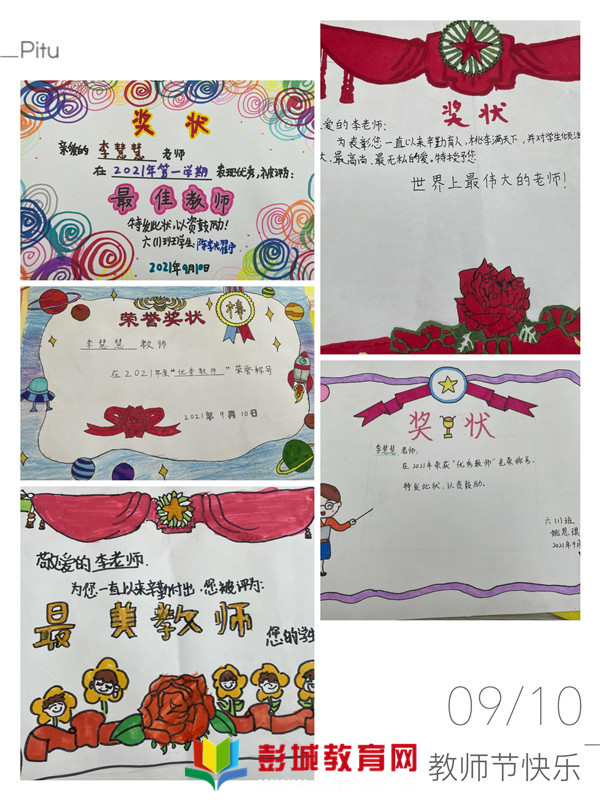 Pitu
奖状
亲爱的 李慧慧 老师
在 2021年第一学期 表现优秀,被评为:
最佳教师
特发此状,以资鼓励!
六(1)班学生
2021年9月10日
奖状
爱的李老师:
为表彰您一直以来辛勤育人,桃李满天下,并对学生倾注
大、最高尚、最无私的爱,特授予您
世界上最伟大的老师!
荣誉奖状
李慧慧 教师
在2021年度“优秀教师”荣誉称号
2021年9月10日
奖状
李慧慧 老师:
在2021年荣获“优秀教师”光荣称号。
特发此状,以资鼓励。
六(1)班
2021年9月
敬爱的李老师.
为您一直以来辛勤付出,您被评为:
最美教师
您的学生
09/10
教师节快乐
彭城教育网